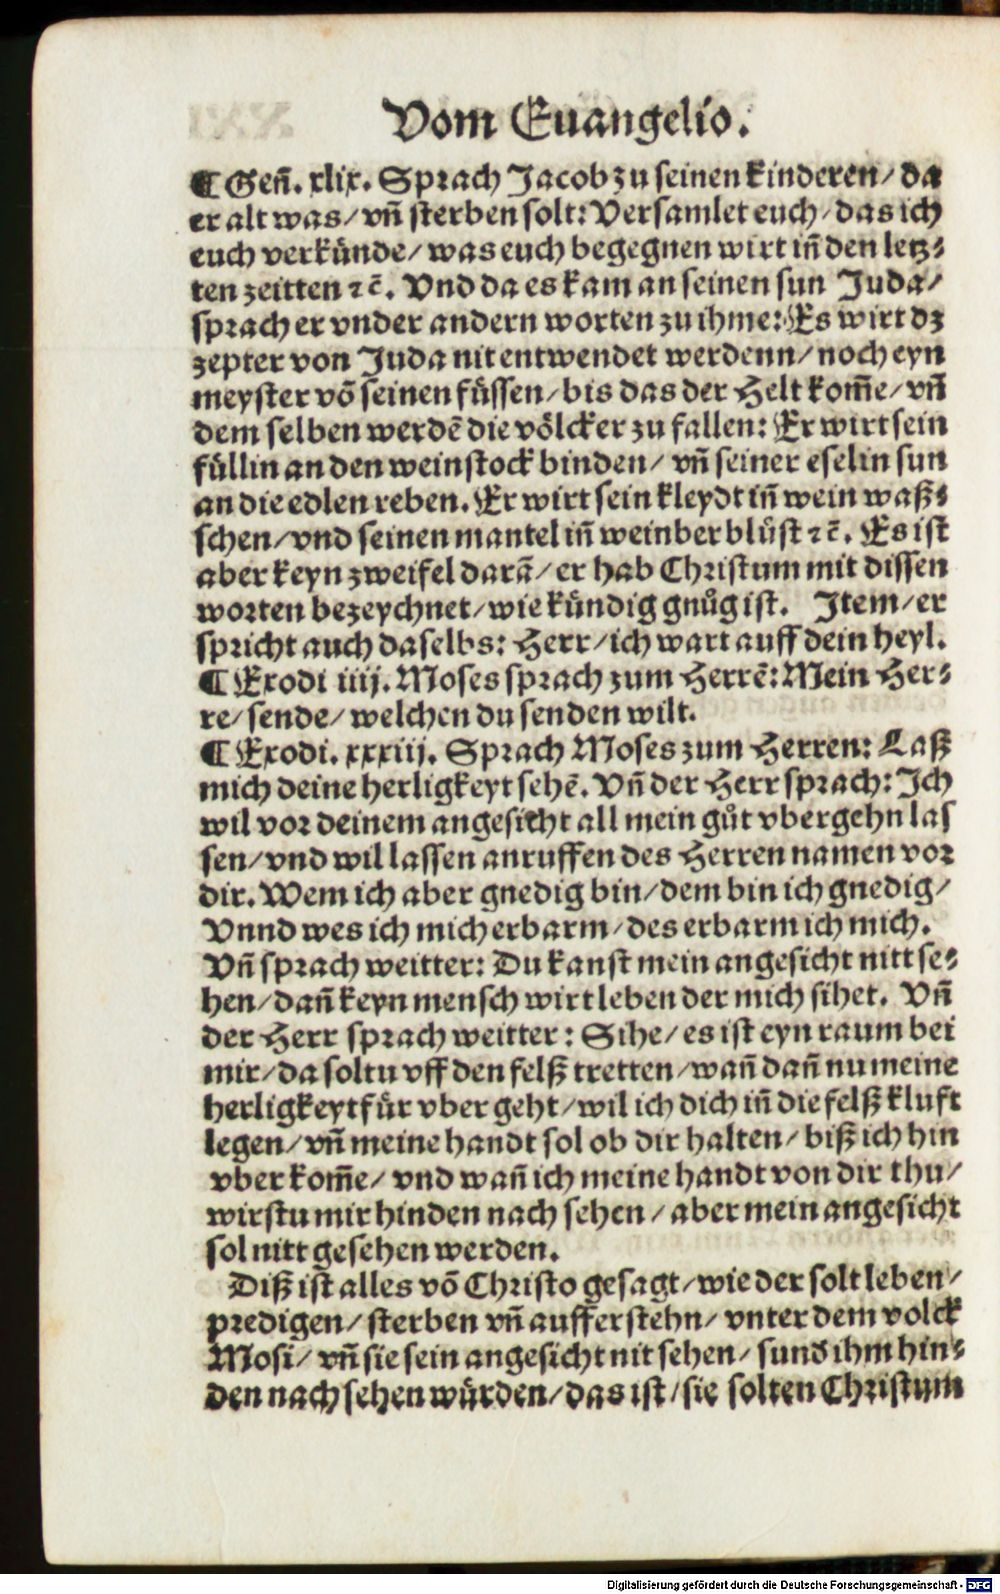 Vom Euangelio.
¶ Geñ. xlix. Sprach Jacob zu seinen kinderen/ da
er alt was/ vñ sterben solt: Versamlet euch/ das ich
euch verkünde/ was euch begegnen wirt iñ den letz⸗
ten zeitten ⁊c̄. Vnd da es kam an seinen sun Juda/
sprach er vnder andern worten zu ihme: Es wirt dz
zepter von Juda nit entwendet werdenn/ noch eyn
meyster võ seinen füssen/ bis das der Helt kom̃e/ vñ
dem selben werdẽ die völcker zu fallen: Er wirt sein
füllin an den weinstock binden/ vñ seiner eselin sun
an die edlen reben. Er wirt sein kleydt iñ wein waß⸗
schen/ vnd seinen mantel iñ weinber blůst ⁊c̄. Es ist
aber keyn zweifel darã/ er hab Christum mit dissen
worten bezeychnet/ wie kündig gnůg ist. Item/ er
spricht auch daselbs: Herr/ ich wart auff dein heyl.
¶ Exodi iiij. Moses sprach zum Herrẽ: Mein Her⸗
re/ sende/ welchen du senden wilt.
¶ Exodi. xxxiij. Sprach Moses zum Herren: Laß
mich deine herligkeyt sehẽ. Vñ der Herr sprach: Ich
wil vor deinem angesicht all mein gůt vbergehn las
sen/ vnd wil lassen anruffen des Herren namen vor
dir. Wem ich aber gnedig bin/ dem bin ich gnedig/
Vnnd wes ich mich erbarm/ des erbarm ich mich.
Vñ sprach weitter: Du kanst mein angesicht nitt se⸗
hen/ dañ keyn mensch wirt leben der mich sihet. Vñ
der Herr sprach weitter: Sihe/ es ist eyn raum bei
mir/ da soltu vff den felß tretten/ wañ dañ nu meine
herligkeyt für vber geht/ wil ich dich iñ die felß kluft
legen/ vñ meine handt sol ob dir halten/ biß ich hin
vber kom̃e/ vnd wañ ich meine handt von dir thu/
wirstu mir hinden nach sehen/ aber mein angesicht
sol nitt gesehen werden.
Diß ist alles võ Christo gesagt/ wie der solt leben/
predigen/ sterben vñ aufferstehn/ vnter dem volck
Mosi/ vñ sie sein angesicht nit sehen/ sund̕ ihm hin⸗
den nach sehen würden/ das ist/ sie solten Christum
Digitalisierung gefördert durch die Deutsche Forschungsgemeinschaft - DFG